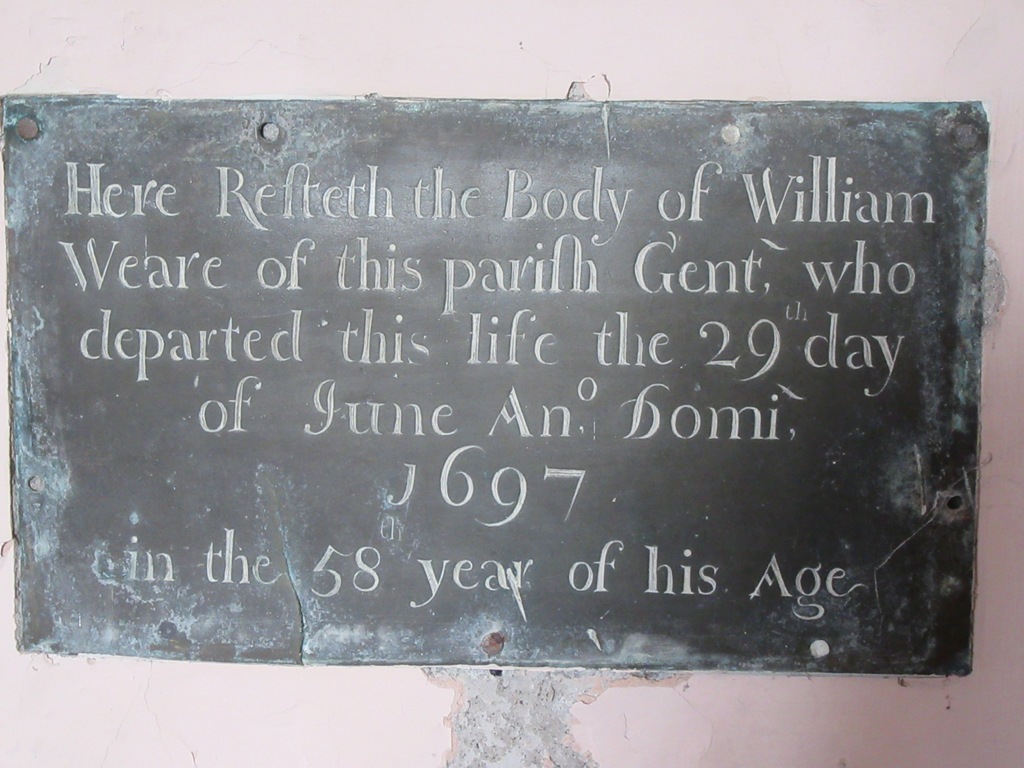 Here Reſteth the Body of William
Weare of this pariſh Gent, who
departed this life the 29th day
of June An,o Domi,
1697
in the 58th year of his Age